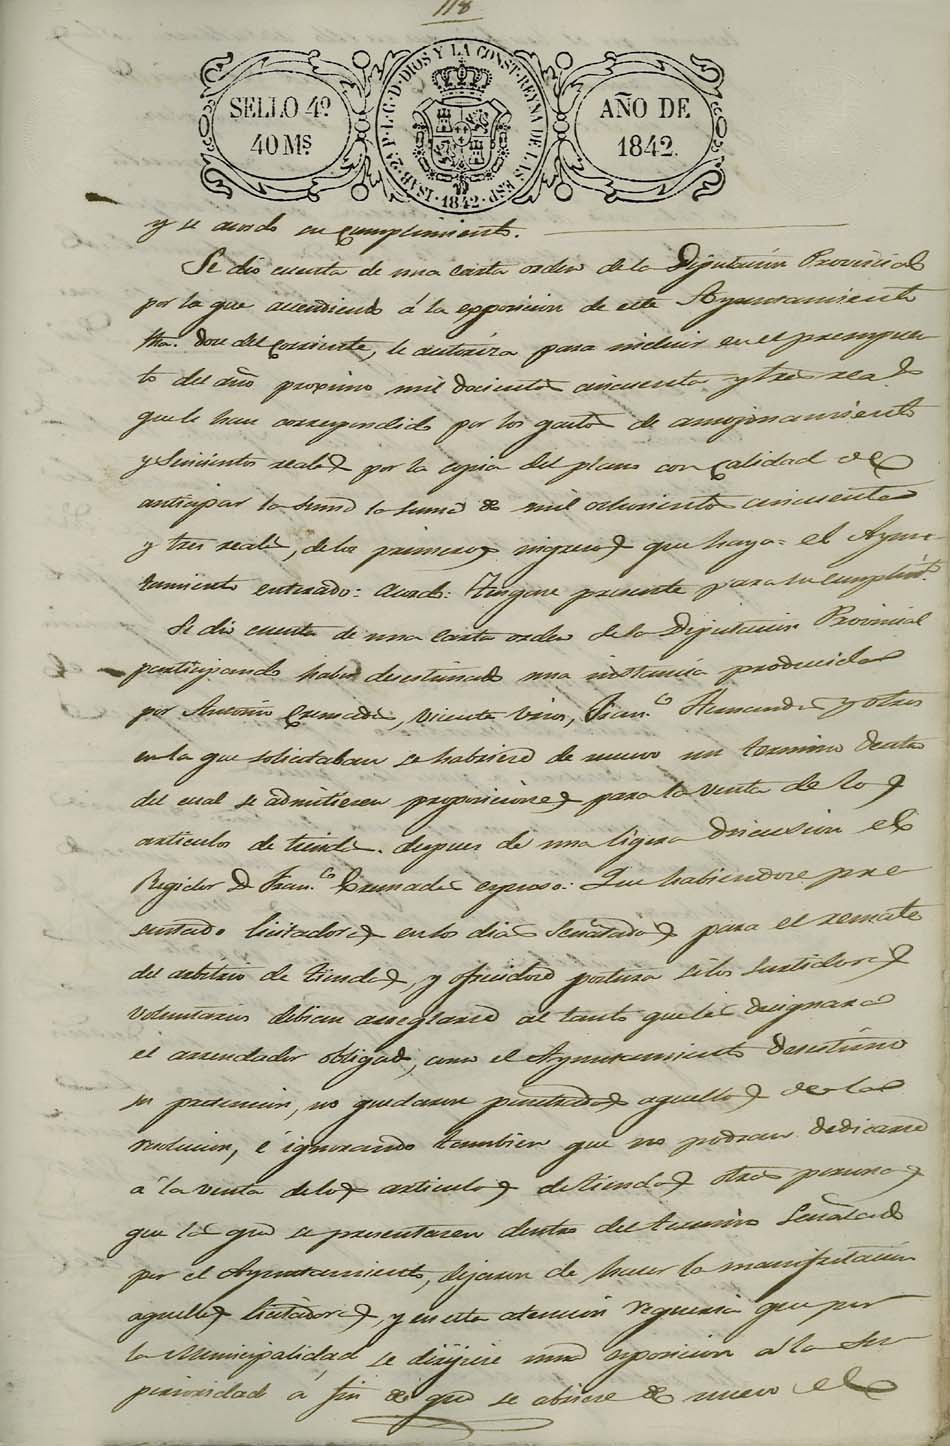 118
SELLO 4º
40 Mˢ
ISAB. 2ª P. L. G. D. DIOS Y LA CONST. REYNA DE LAS ESP.
1842
AÑO DE
1842.
y se acordo su cumplimiento.
Se dio cuenta de una carta orden de la Diputación Provincial
por la que accediendo á la exposicion de este Ayuntamiento
fha. doce del corriente, le autoriza para incluir en el presupues-
to del año proximo mil docientos cincuenta y tres reales
que le han correspondido por los gastos de amojonamiento
y seiscientos reales por la copia del plano con calidad de
anticipar la suma la suma de mil ochocientos cincuenta
y tres reales, de los primeros ingresos que haya = el Ayun-
tamiento enterado: Acordo: Tengase presente para su cumplimto.
Se dio cuenta de una carta orden de la Diputacion Provincial
participando haber desestimado una instancia producida
por Antonio Cremades, Vicente Vives, Fran.co Hernandez y otros
en la que solicitaban se habriese de nuevo un termino dentro
del cual se admitiesen proposiciones para la venta de los
articulos de tienda. despues de una ligera discusion el
Regidor D. Fran.co Cremades espuso: Que habiendose pre-
sentado licitadores en los dias señalados para el remate
del arbitrio de tiendas, y ofrecidose postura si los surtidores
voluntarios debian arreglarse al tanto que les designara
el arrendador obligado, como el Ayuntamiento desestimo
su pretencion, no quedaron penetrados aquellos de la
resolucion, é ignorando tambien que no podran dedicarse
á la venta de los articulos de tiendas otras personas
que las que se presentaren dentro del termino señalado
por el Ayuntamiento, dejaron de hacer la manifestacion
aquellos licitadores, y en esta atencion requeria que por
la Municipalidad se dirijiese una exposicion á la Su-
perioridad á fin de que se abriese de nuevo el